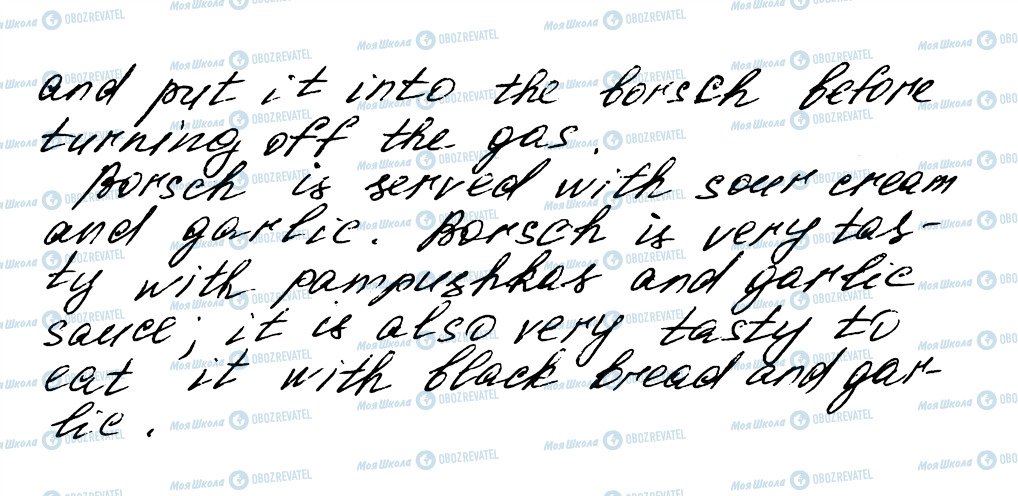 and put it into the borsch before
turning off the gas.
Borsch is served with sour cream
and garlic. Borsch is very tas-
ty with pampushkas and garlic
sauce; it is also very tasty to
eat it with black bread and gar-
lic.